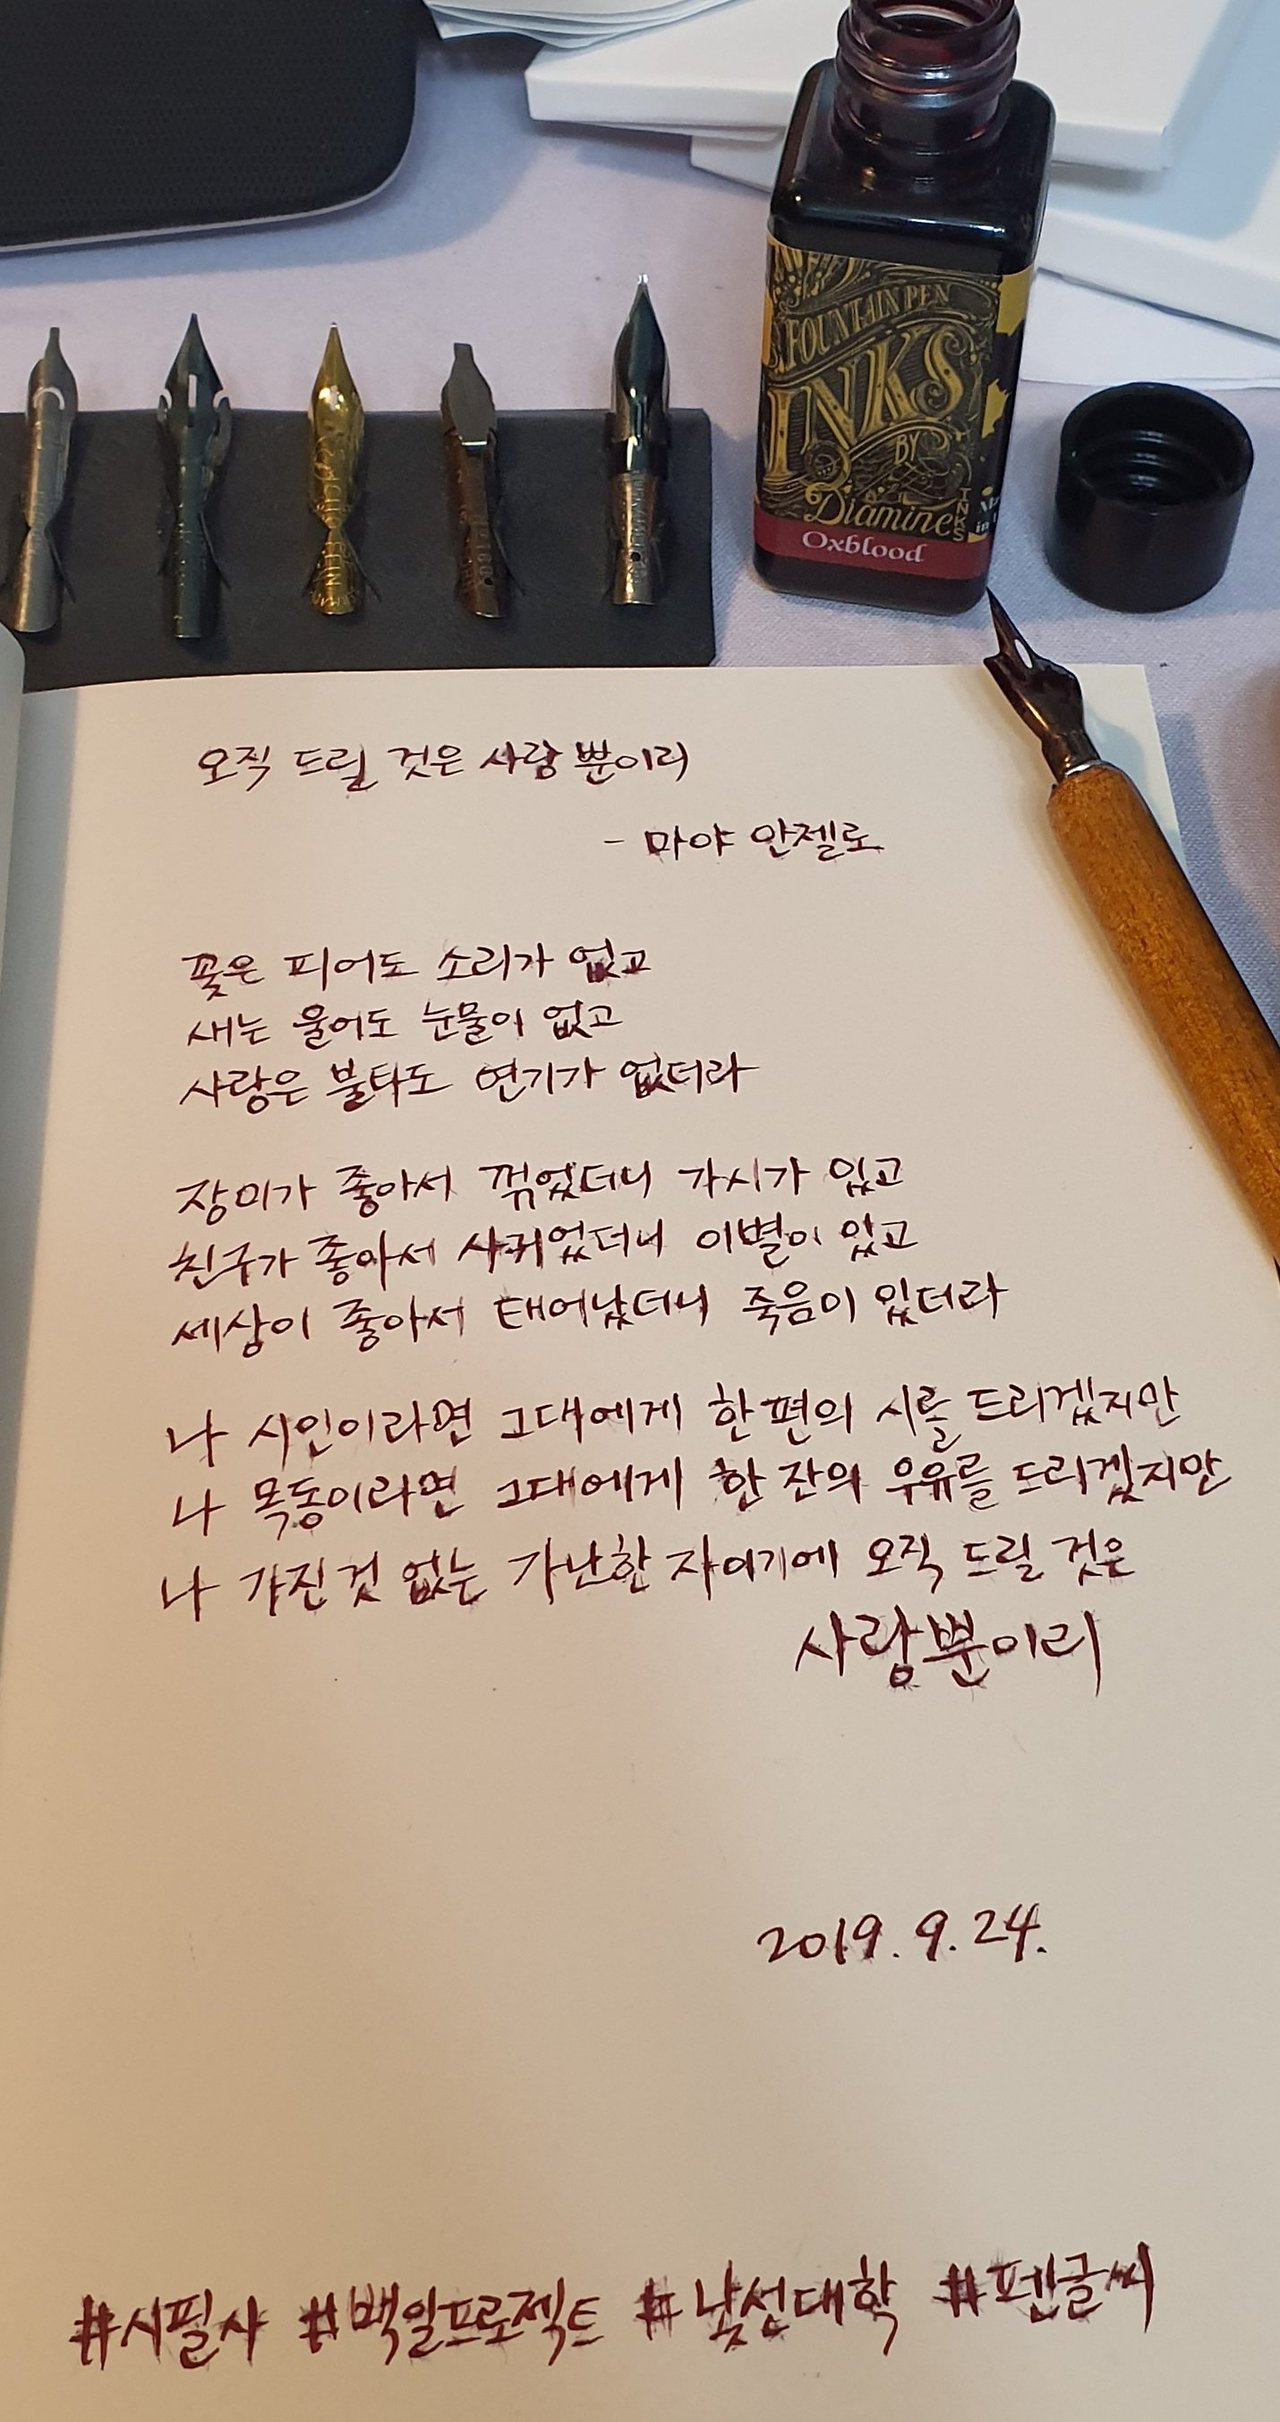 FOUNTAIN PEN
INKS
BY
Diamine
INKS
Oxblood
오직 드릴 것은 사랑 뿐이리
- 마야 안젤로
꽃은 피어도 소리가 없고
새는 울어도 눈물이 없고
사랑은 불타도 연기가 없더라
장미가 좋아서 꺾었더니 가시가 있고
친구가 좋아서 사귀었더니 이별이 있고
세상이 좋아서 태어났더니 죽음이 있더라
나 시인이라면 그대에게 한 편의 시를 드리겠지만
나 목동이라면 그대에게 한 잔의 우유를 드리겠지만
나 가진 것 없는 가난한 자이기에 오직 드릴 것은
사랑뿐이리
2019. 9. 24.
#시필사 #백일프로젝트 #낯선대학 #펜글씨